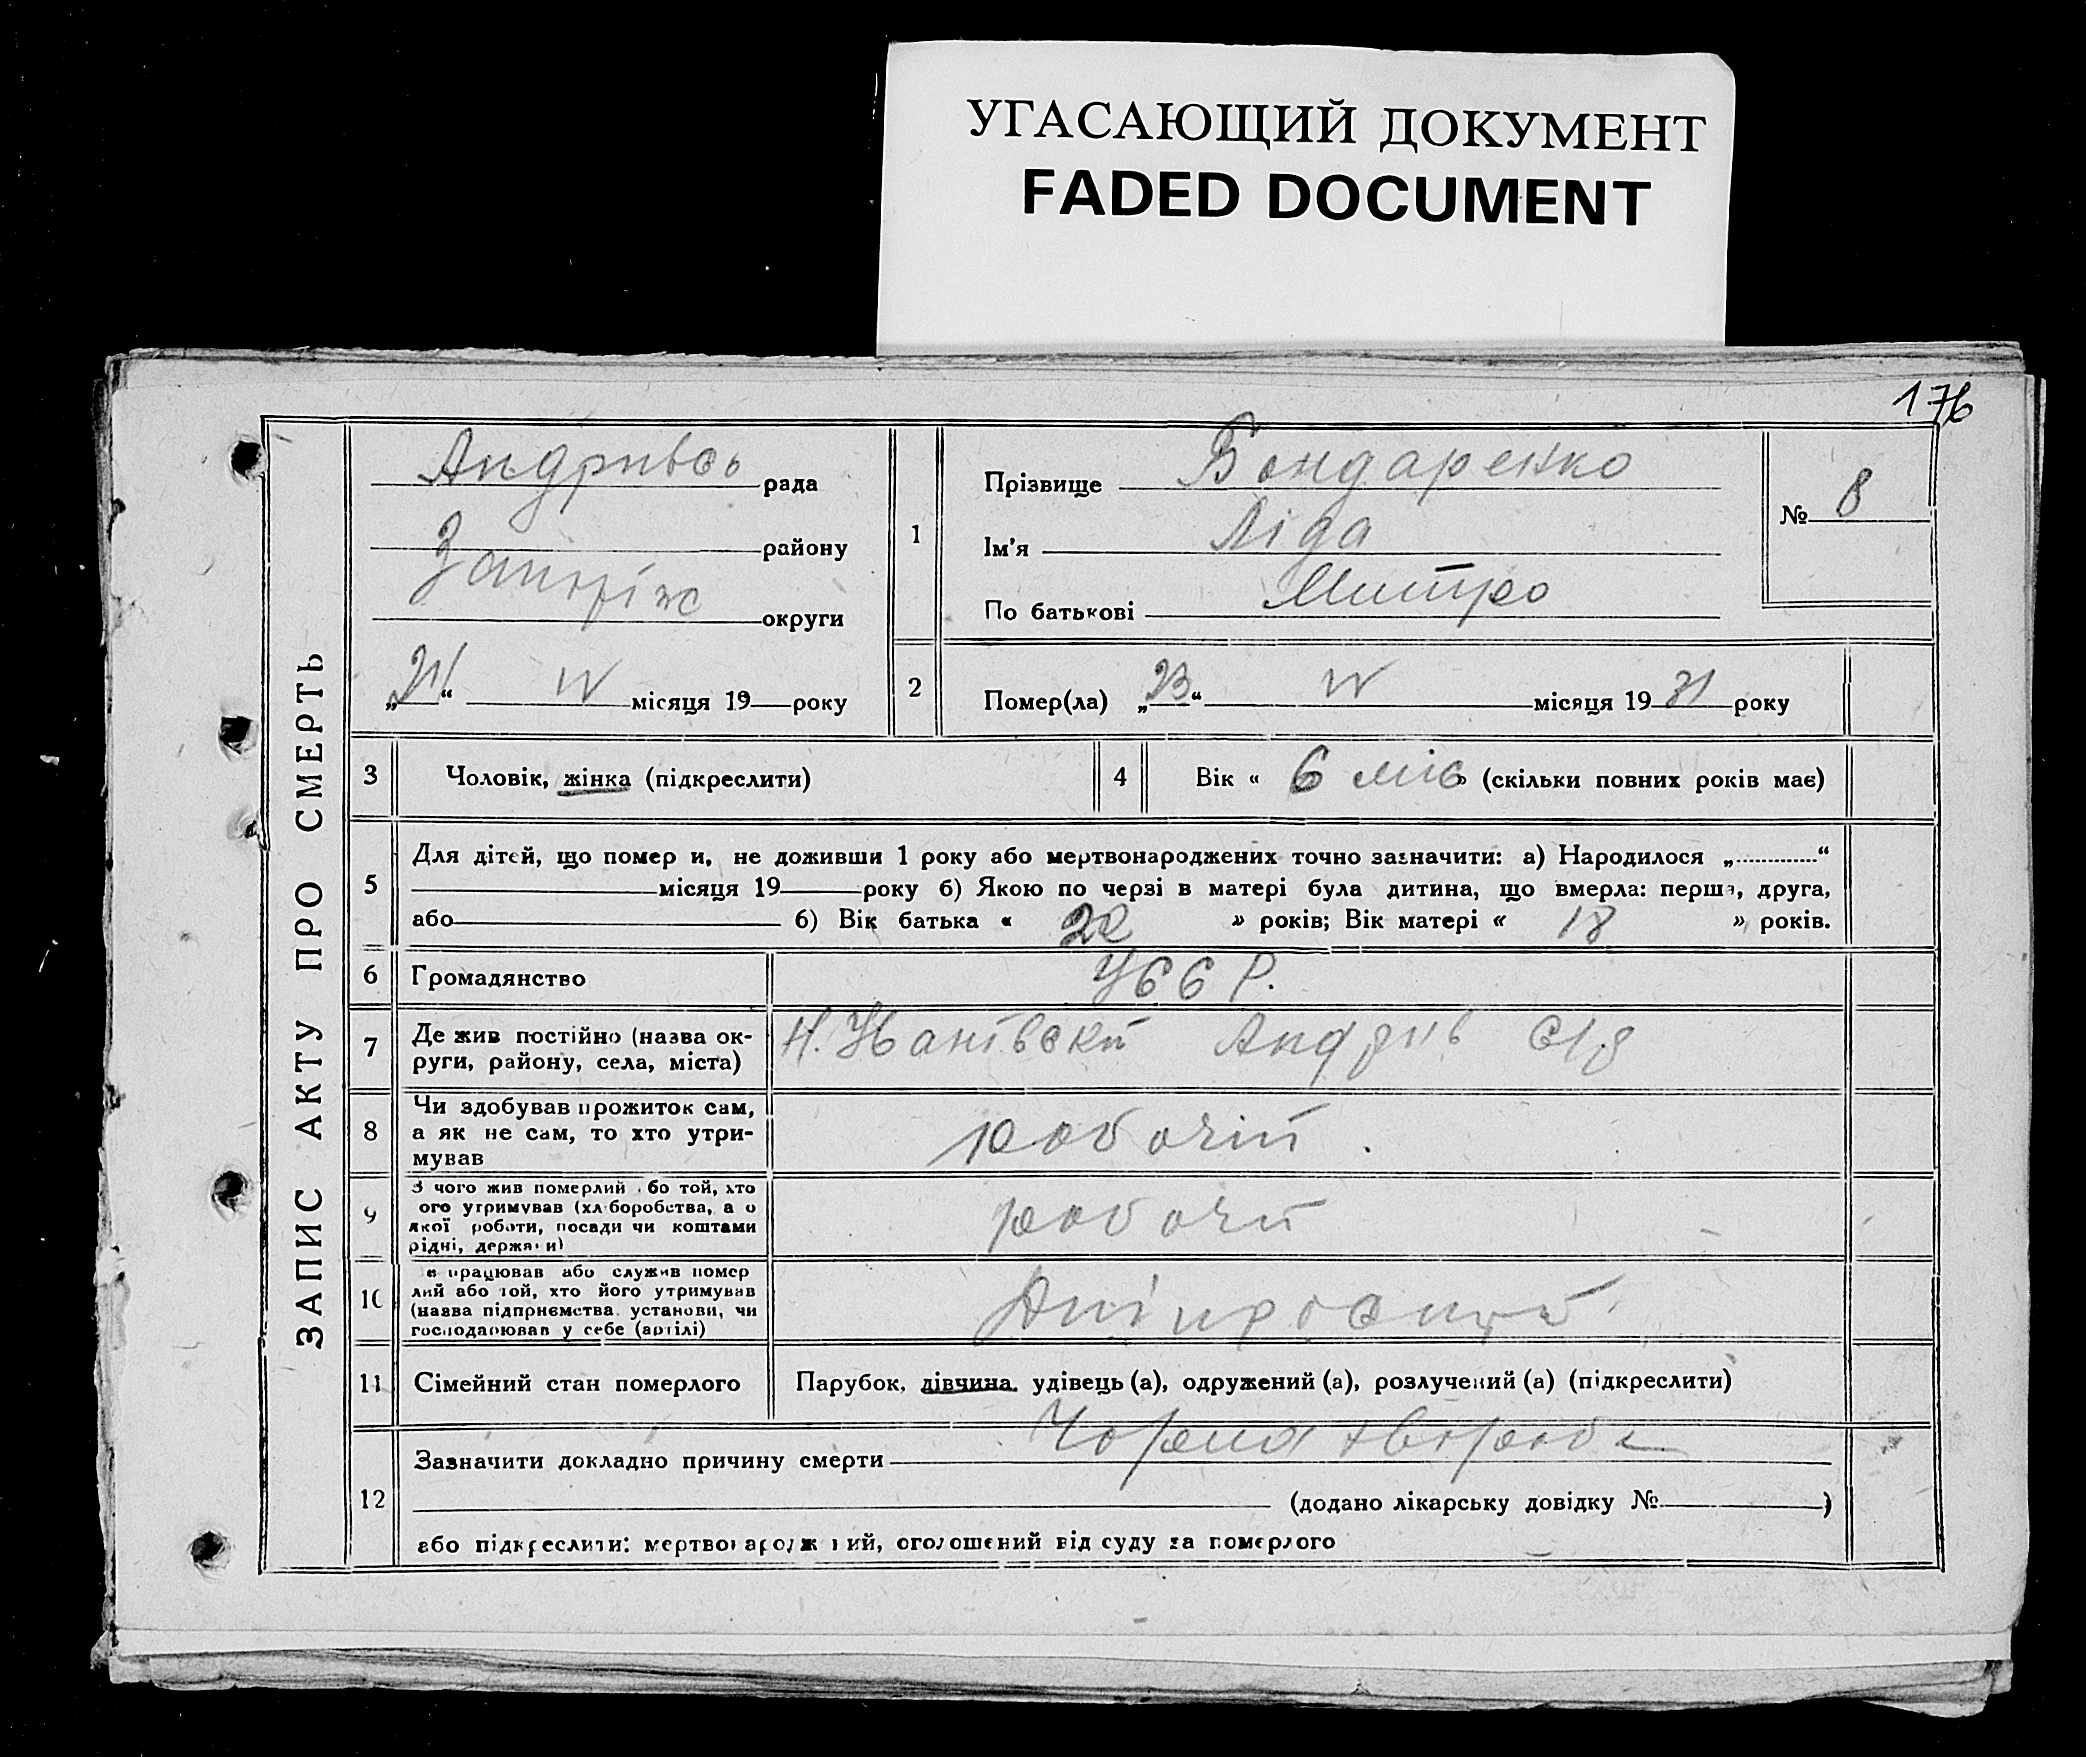 УГАСАЮЩИЙ ДОКУМЕНТ
FADED DOCUMENT
176
ЗАПИС АКТУ ПРО СМЕРТЬ
рада
району
Запоріж
округи
„ “ IV місяця 19 року
1
Прізвище Бондаренко
Ім'я Ліда
По батькові Митро
№ 8
2
Помер(ла) „23“ IV місяця 1931 року
3
Чоловік, жінка (підкреслити)
4
Вік « 6 міс » (скільки повних років має)
5
Для дітей, що померли, не доживши 1 року або мертвонароджених точно зазначити: а) Народилося „ “
місяця 19 року б) Якою по черзі в матері була дитина, що вмерла: перша, друга,
або б) Вік батька « 22 » років; Вік матері « 18 » років.
6
Громадянство
УССР.
7
Де жив постійно (назва ок-
руги, району, села, міста)
8
Чи здобував прожиток сам,
а як не сам, то хто утри-
мував
робочій
9
З чого жив померлий або той, хто
його утримував (хліборобства, або
якої роботи, посади чи коштами
рідні, держави)
робочій
10
Де працював або служив помер
лий або той, хто його утримував
(назва підприємства, установи, чи
господарював у себе (артілі)
11
Сімейний стан померлого
Парубок, дівчина, удівець (а), одружений (а), розлучений (а) (підкреслити)
12
Зазначити докладно причину смерти
(додано лікарську довідку № )
або підкреслити: мертвонароджений, оголошений від суду за померлого